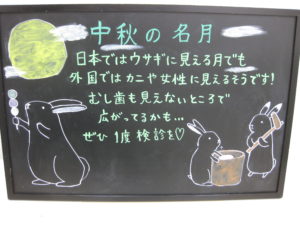 中秋の名月
日本ではウサギに見える月でも
外国ではカニや女性に見えるそうです!
むし歯も見えないところで
広がってるかも…
ぜひ1度検診を♡